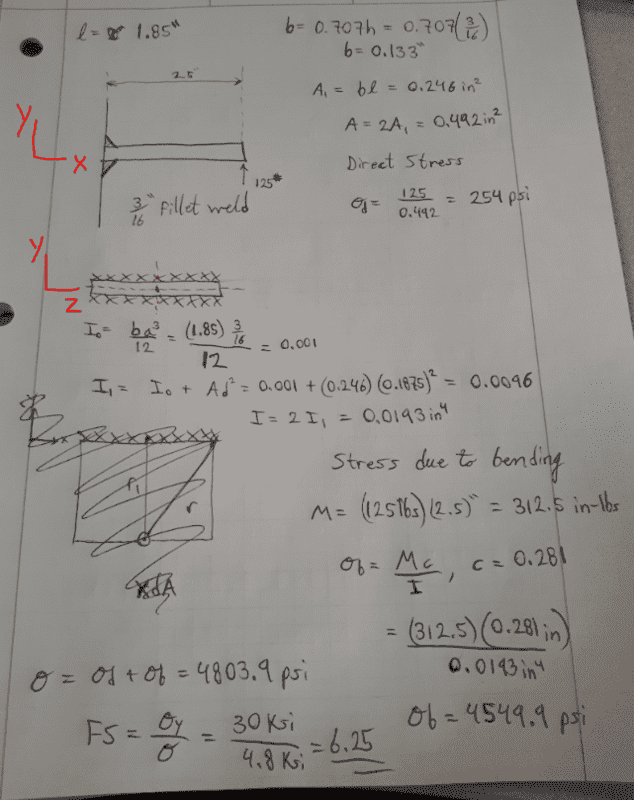 l = 1.85"
b = 0.707h = 0.707(3/16)
b = 0.133"
A₁ = bl = 0.246 in²
A = 2A₁ = 0.492 in²
2.5"
y
x
125#
3/16" fillet weld
Direct Stress
σd = 125/0.492 = 254 psi
y
z
I₀ = ba³/12 = (1.85) 3/16/12 = 0.001
I₁ = I₀ + Ad² = 0.001 + (0.246)(0.1875)² = 0.0096
I = 2I₁ = 0.0193 in⁴
r₁
r
dA
Stress due to bending
M = (125lbs)(2.5)" = 312.5 in-lbs
σb = Mc/I, c = 0.281
= (312.5)(0.281 in)/0.0193 in⁴
σb = 4549.9 psi
σ = σd + σb = 4803.9 psi
FS = σy/σ = 30 Ksi/4.8 Ksi = 6.25